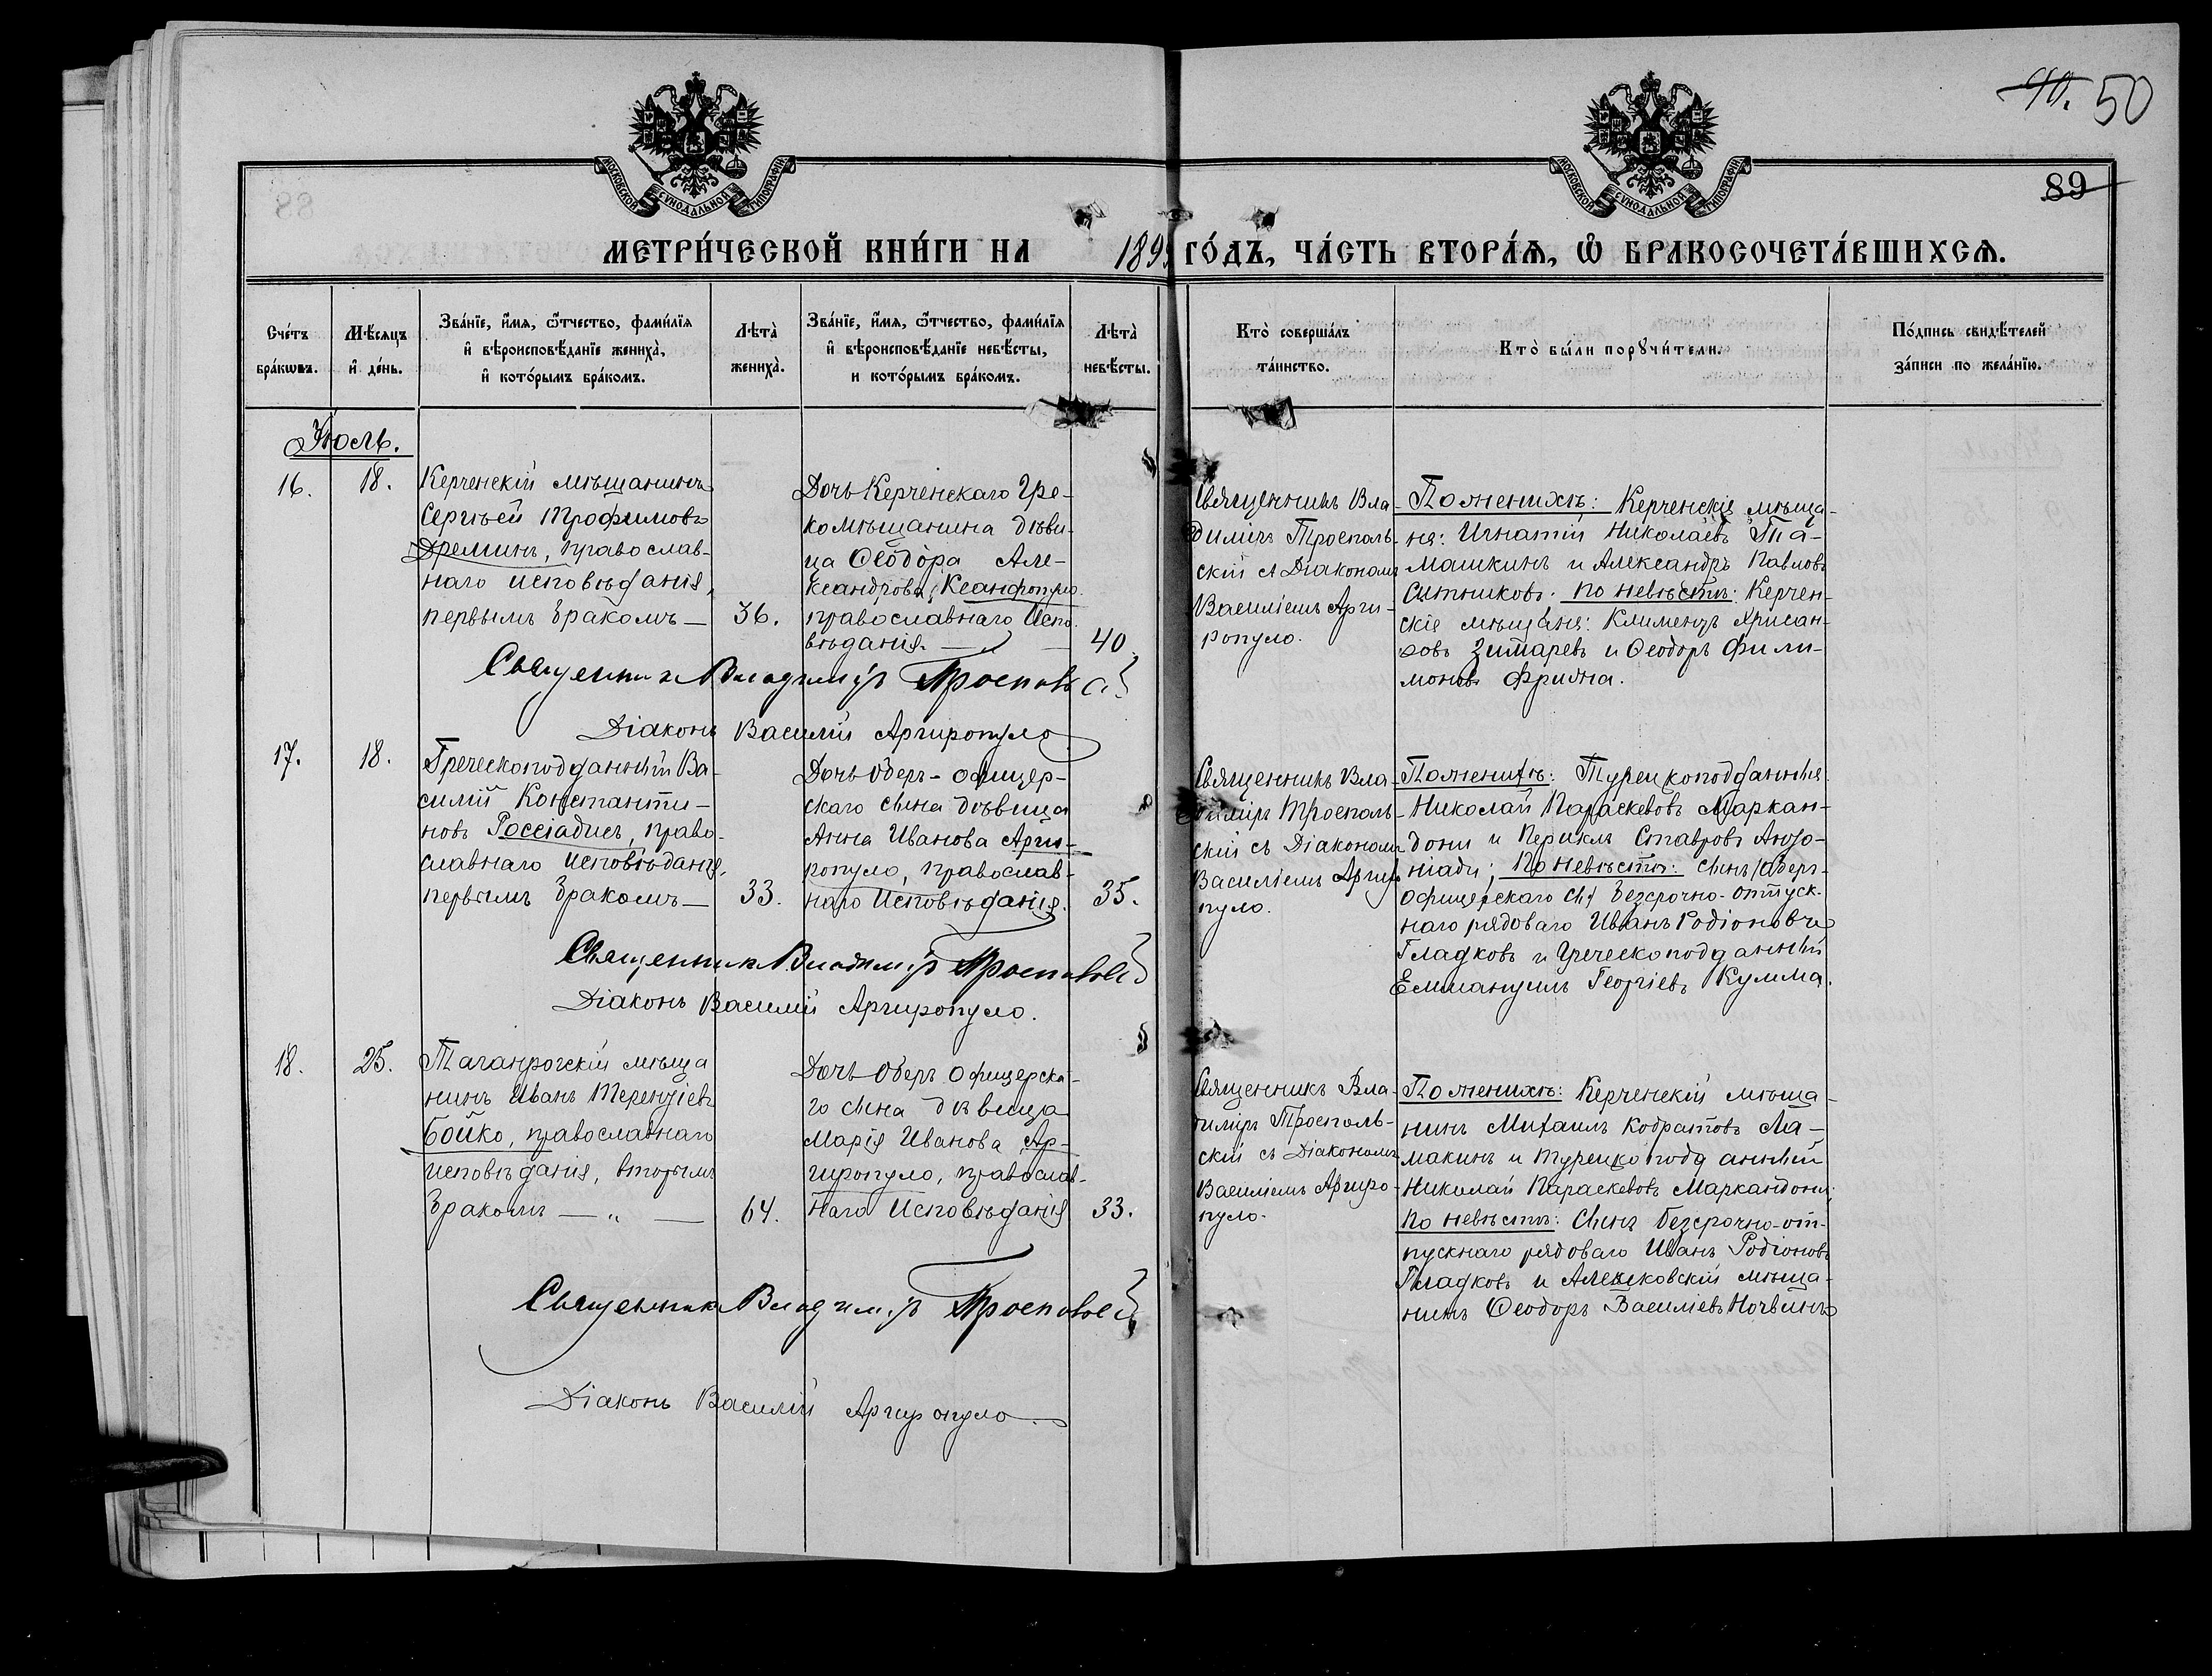 40. 50
МОСКОВСКОЙ СѴНОДАЛЬНОЙ ТИПОГРАФІИ
МОСКОВСКОЙ СѴНОДАЛЬНОЙ ТИПОГРАФІИ
89
МЕТРИ́ЧЕСКОЙ КНИ́ГИ НА 189 ГО́ДЪ, ЧА́СТЬ ВТОРА́Ѧ, Ѽ БРАКОСОЧЕТА́ВШИХСѦ.
Сче́тъ бра́кѡвъ.
Мѣ́сѧцъ и҆ де́нь.
Зва́нїе, и҆́мѧ, ѻ҆́тчество, фами́лїѧ и҆ вѣроисповѣ́данїе жениха̀, и҆ кото́рымъ бра́комъ.
Лѣта̀ жениха̀.
Зва́нїе, и҆́мѧ, ѻ҆́тчество, фами́лїѧ и҆ вѣроисповѣ́данїе невѣ́сты, и кото́рымъ бра́комъ.
Лѣта̀ невѣ́сты.
Кто̀ соверша́лъ та́инство.
Кто̀ бы́ли порꙋчи́тели.
По́дпись свидѣ́телей за́писи по жела́нїю.
Іюль.
16.
18.
Керченскій мѣщанинъ
Сергѣй Трофимовъ
Дремин, православ-
наго исповѣданія,
первымъ бракомъ —
36.
Дочь Керченскаго Гре-
ко мѣщанина дѣви-
ца Ѳеодора Але-
ксандрова Ксанфопуло
православнаго Испо-
вѣданія. — „ —
40.
Священникъ Вла-
диміръ Троеполь-
скій съ Діакономъ
Василіемъ Арги-
ропуло.
По женихѣ: Керченскіе мѣща-
не: Игнатій Николаевъ Па-
машкинъ и Александръ Павловъ
Ситниковъ. По невѣстѣ: Керчен-
скіе мѣщане: Климентъ Хрисан-
ѳовъ Зитаревъ и Ѳеодоръ Фили-
моновъ Фридна.
Священникъ Владиміръ Троепольскій
Діаконъ Василій Аргиропуло
17.
18.
Греческоподданный Ва-
силій Константи-
новъ Россіадисъ, право-
славнаго исповѣданія,
первымъ бракомъ —
33.
Дочь Оберъ-офицер-
скаго сына дѣвица
Анна Иванова Арги-
ропуло, православ-
наго Исповѣданія.
35.
Священникъ Вла-
диміръ Троеполь-
скій съ Діакономъ
Василіемъ Аргиро-
пуло.
По женихѣ: Турецкоподданные
Николай Параскевовъ Маркан-
дони и Периклъ Ставровъ
По невѣстѣ: сынъ
безсрочно-отпуск-
наго рядоваго Иванъ Родіоновъ
Гладковъ и Греческоподданный
Еммануилъ Георгіевъ Кулма.
Священникъ Владиміръ Троепольскій
Діаконъ Василій Аргиропуло.
18.
25.
Таганрогскій мѣща
нинъ Иванъ Терентіевъ
Бойко, православнаго
исповѣданія, вторымъ
бракомъ — „ —
64.
Дочь Оберъ офицерска-
го сына дѣвица
Марія Иванова Ар-
гиропуло, православ-
наго Исповѣданія
33.
Священникъ Вла-
диміръ Троеполь-
скій съ Діакономъ
Василіемъ Аргиро-
пуло.
По женихѣ: Керченскій мѣща-
нинъ Михаилъ Кодратовъ Ла-
макинъ и турецкоподданный
Николай Параскевовъ Маркандони;
По невѣстѣ: Сынъ безсрочно-от-
пускнаго рядоваго Иванъ Родіоновъ
Гладковъ и Алешковскій мѣща-
нинъ Ѳеодоръ Василіевъ Ночвинъ
Священникъ Владиміръ Троепольскій
Діаконъ Василій Аргиропуло